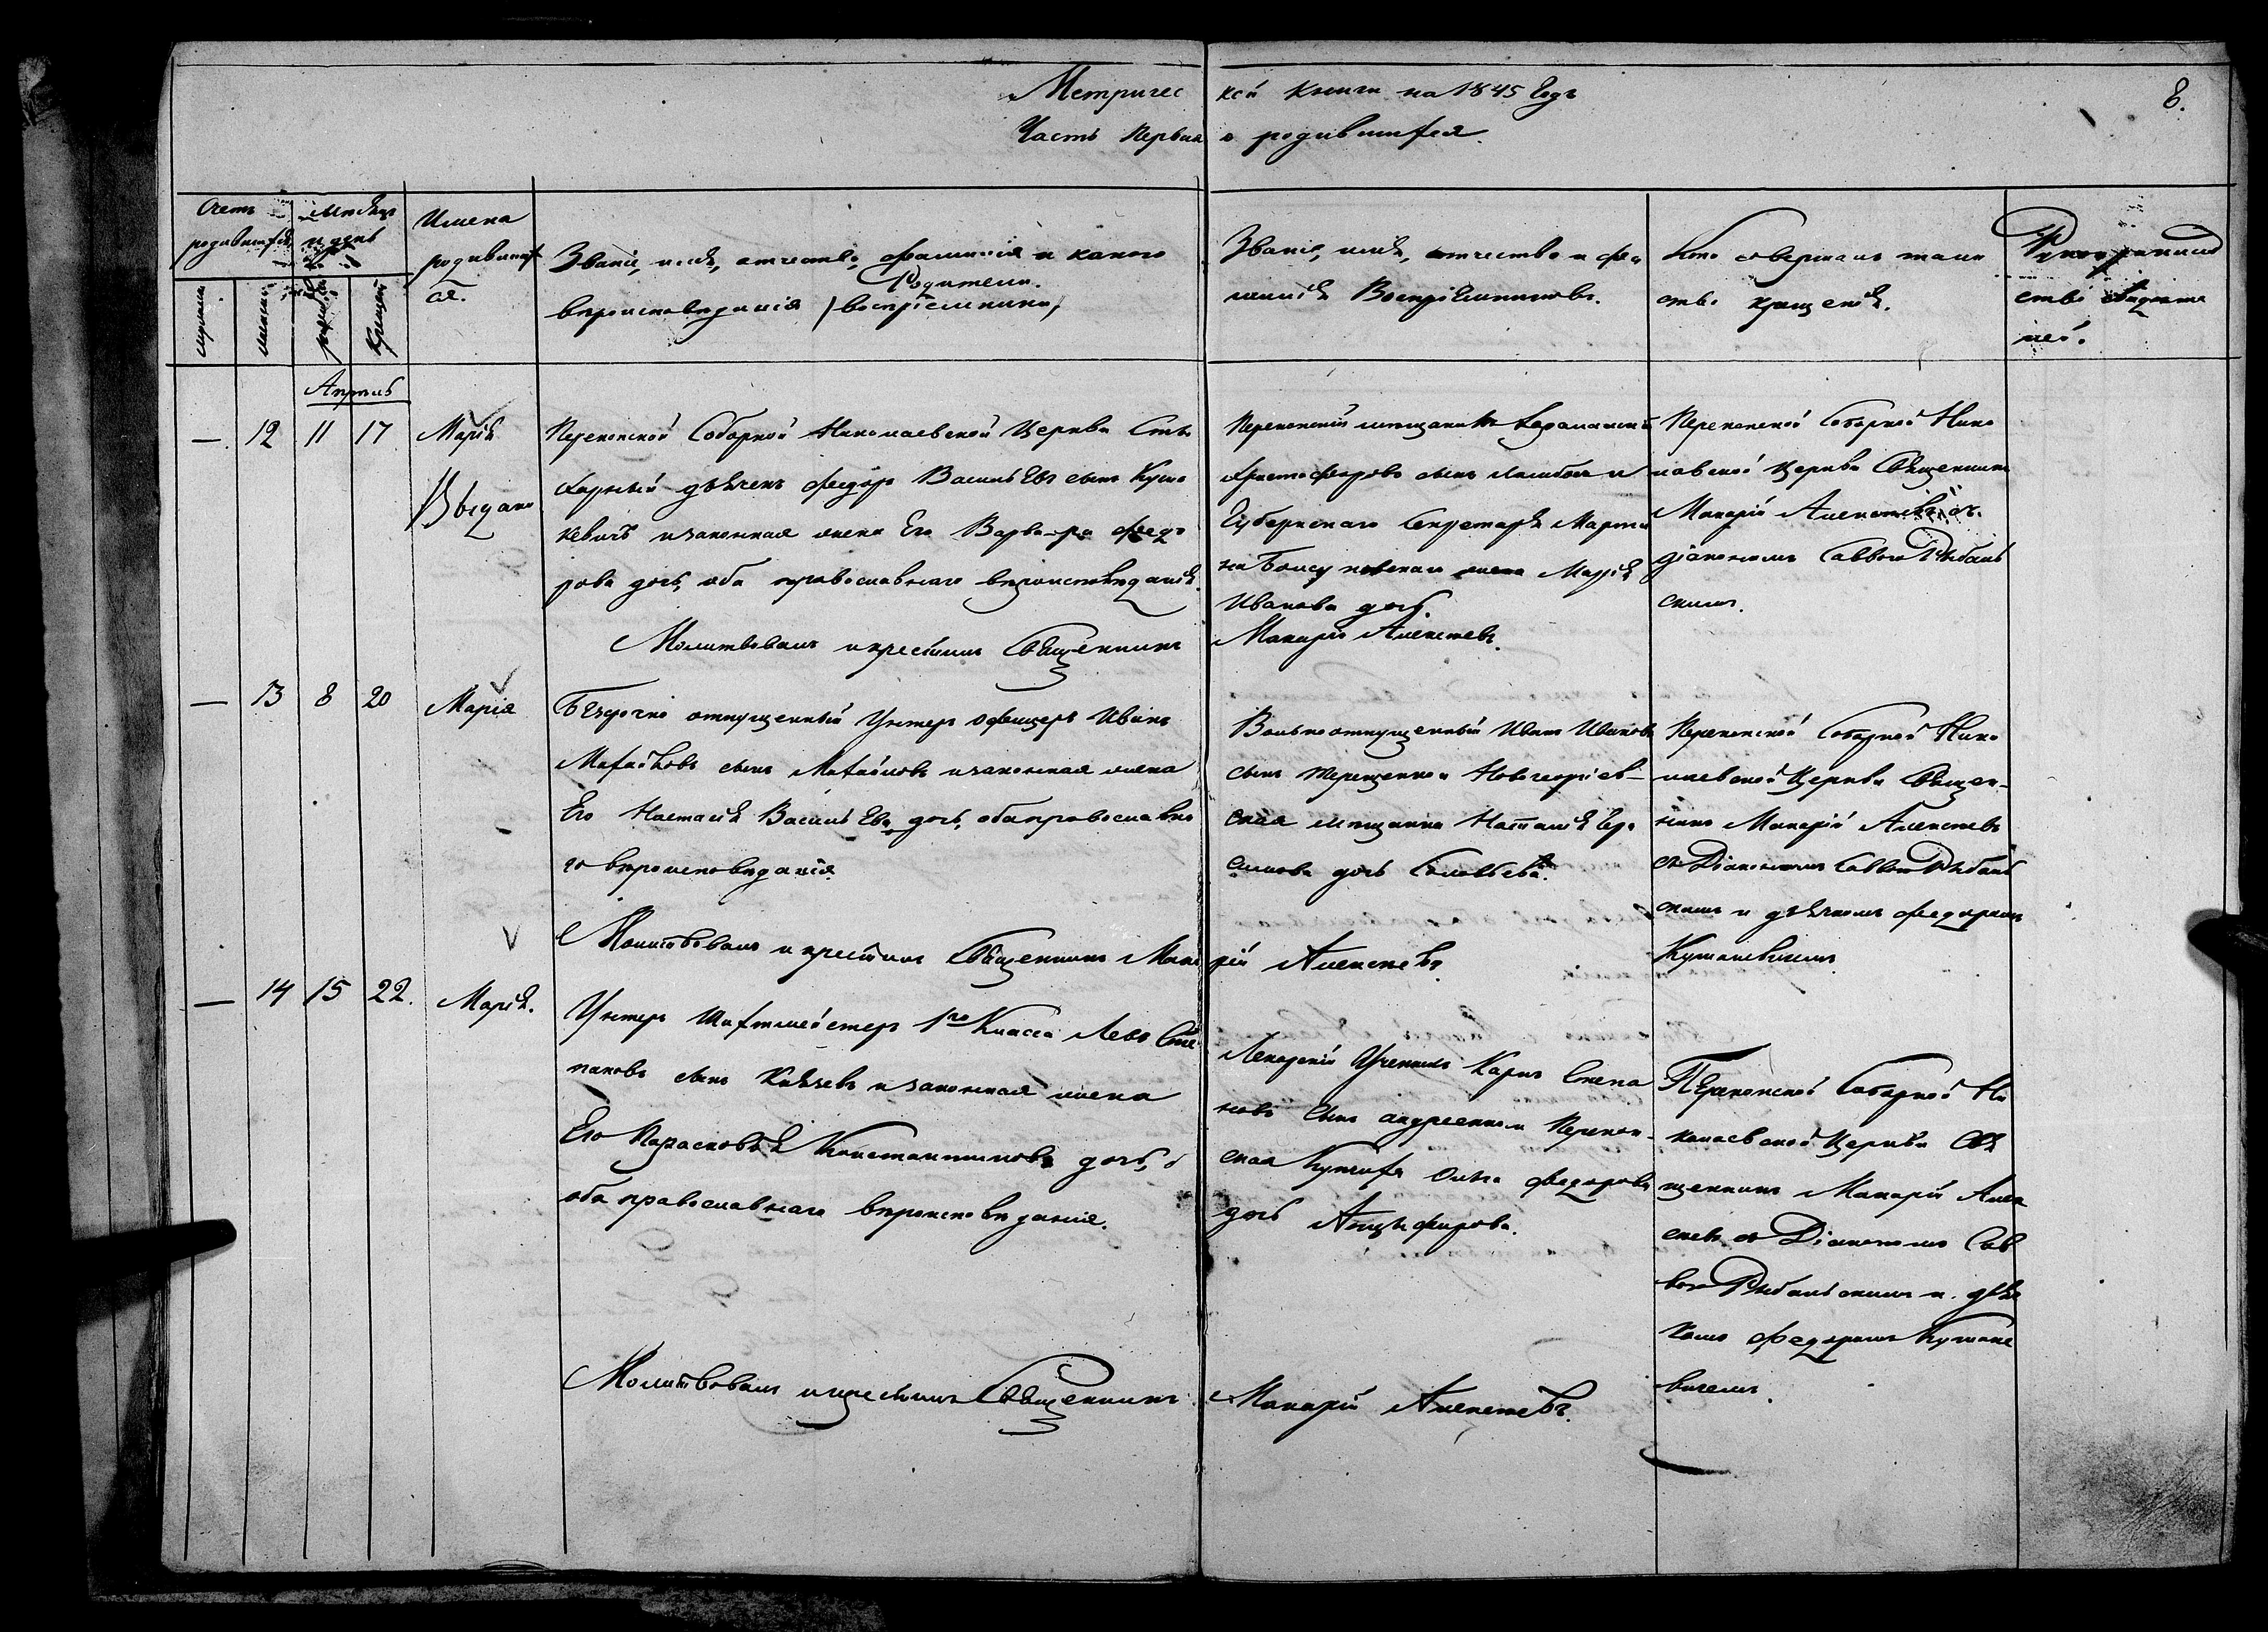 Метричес кой книги на 1845 Годъ
8.
Часть Первая о родившихся.
Счетъ родившихся
Месяцъ и день
мужеска
женска
рожденія
крещенія
Имена
родившихъ
ся.
Званіе, имя, отчество, фамилія и какого
Родители.
вероисповеданія (воспріемники)
Званіе, имя, отчество и фа
милія Воспріемниковъ.
Кто совершалъ таин
ство крещенія.
Рукоприклад
ство свидете
лей.
Апрель
— 12 11 17 Марія
Выдано
Перекопской Соборной Николаевской Церкви Сти
харный дьячекъ Федоръ Васильевъ сынъ Кута
кевичъ и законная жена Его Варвара Федо
рова дочь, оба православнаго вероисповеданія.
Молитвовалъ и крестилъ Священникъ
Перекопскій мещанинъ
Христофоровъ сынъ и
Губернскаго Секретаря Марти
на жена Марія
Иванова дочь.
Макарій Алексеевъ.
Перекопской Соборной Нико
лавской Церкви Священникъ
Макарій Алексеевъ съ
діакономъ Саввою Рыбаль
скимъ.
— 13 8 20 Марія
Безсрочно отпущенный Унтеръ офицеръ Иванъ
Михайловъ сынъ Михайловъ и законная жена
Его Настасія Васильева дочь, оба православна
го вероисповеданія.
Молитвовалъ и крестилъ Священникъ Мака
рій Алексеевъ.
Вольноотпущенный Иванъ Ивановъ
сынъ Терещенко и Новогеоргіев-
ская мещанка Наталія Гера
симова дочь Соловьева.
Перекопской Соборной Нико
лаевской Церкви Священ-
никъ Макарій Алексеевъ
съ Діакономъ Саввою Рыбаль
скимъ и дьячкомъ Федоромъ
Кутакевичемъ
— 14 15 22. Марія.
Унтеръ Шихтмейстеръ 1го Класса Левъ Сте
пановъ сынъ Князевъ и законная жена
Его Парасковія Константинова дочь,
оба православнаго вероисповеданія.
Молитвовалъ и крестилъ Священникъ
Лекарскій Ученикъ Карпъ Степа
новъ Сынъ Андреенко и Перекоп-
ская Купчиха Ольга Федорова
дочь Анцыфирова.
Макарій Алексеевъ.
Перекопской Соборной Ни
колаевской Церкви Свя
щенникъ Макарій Алек
сеевъ съ Діакономъ Сав
вою Рыбальскимъ и дьяч
комъ Федоромъ Кутаке
вичемъ.